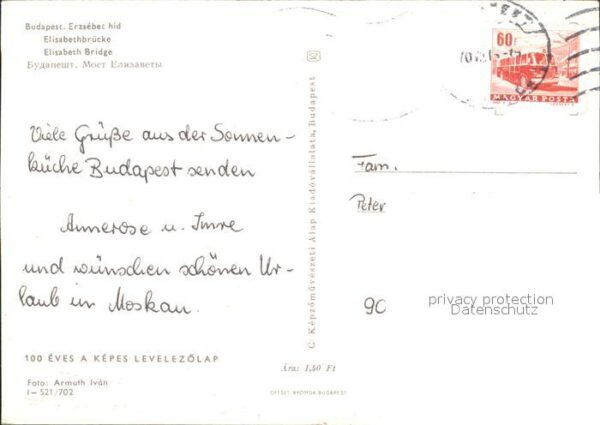 Budapest. Erzsébet híd
Elisabethbrücke
Elisabeth Bridge
Будапешт. Мост Елизаветы
60f
MAGYAR POSTA
Viele Grüße aus der Sonnen-
küche Budapest senden
Annerose u. Imre
und wünschen schönen Ur-
laub in Moskau.
Fam.
Peter
90
privacy protection
Datenschutz
© Képzőművészeti Alap Kiadóvállalata, Budapest
100 ÉVES A KÉPES LEVELEZŐLAP
Ára: 1,50 Ft
Foto: Armuth Iván
I–521/702
OFFSET-NYOMDA BUDAPEST